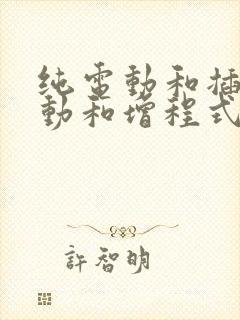 纯電動和插
動和增程式
許智明